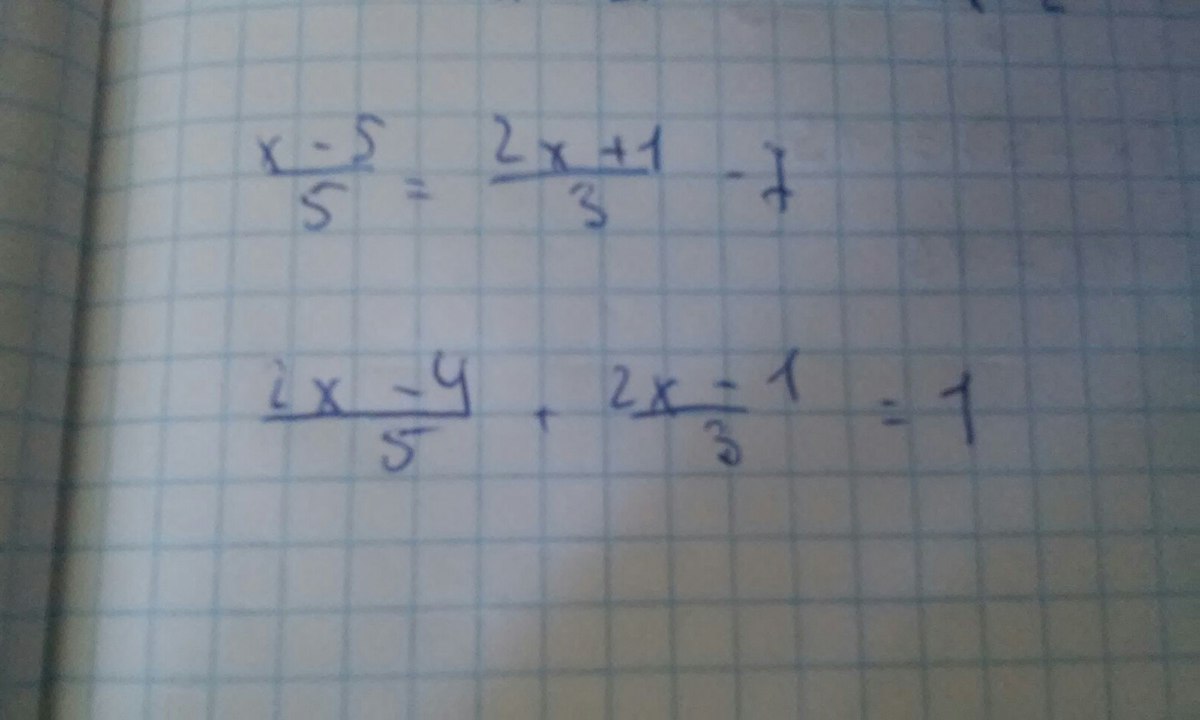 x - 5 / 5 = 2x + 1 / 3 - 7
2x - 4 / 5 + 2x - 1 / 3 = 1